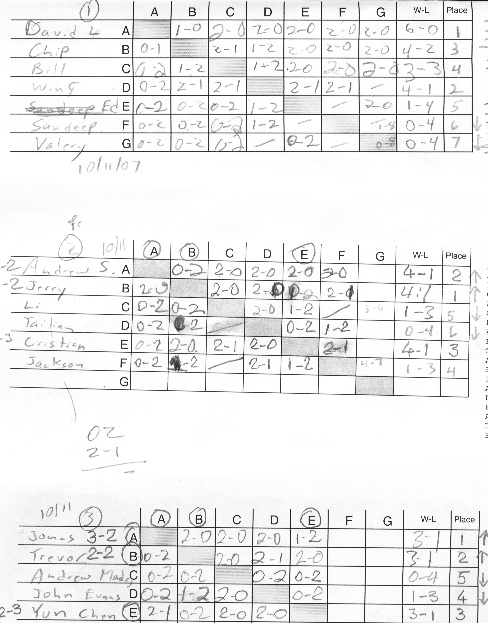 1 A B C D E F G W-L Place
David L A 1-0 2-0 2-0 2-0 2-0 2-0 6-0 1
Chip B 0-1 2-1 1-2 2-0 2-0 2-0 4-2 3
Bill C 0-2 1-2 1-2 2-0 2-0 2-0 3-3 4
Wing D 0-2 2-1 2-1 2-1 2-1 - 4-1 2
Ed E 0-2 0-2 0-2 1-2 - 2-0 1-4 5
Sandeep F 0-2 0-2 0-2 1-2 - 0-4 6
Valery G 0-2 0-2 0-2 - 0-2 0-4 7
10/11/07
2 10/11 A B C D E F G W-L Place
-2 Andrew S. A 0-2 2-0 2-0 2-0 2-0 4-1 2
-2 Jerry B 2-0 2-0 2-0 0-2 2-0 4-1 1
Li C 0-2 0-2 2-0 1-2 / 1-3 5
D 0-2 0-2 / 0-2 1-2 0-4 6
-3 Cristian E 0-2 2-0 2-1 2-0 2-1 4-1 3
Jackson F 0-2 0-2 / 2-1 1-2 1-3 4
G
02
2-1
10/11 3 A B C D E F G W-L Place
Jonas 3-2 A 2-0 2-0 2-0 1-2 3-1 1
Trevor 2-2 B 0-2 2-0 2-1 2-0 3-1 2
Andrew C 0-2 0-2 0-2 0-2 0-4 5
John Evans D 0-2 1-2 2-0 0-2 1-3 4
2-3 Yun Chen E 2-1 0-2 2-0 2-0 3-1 3